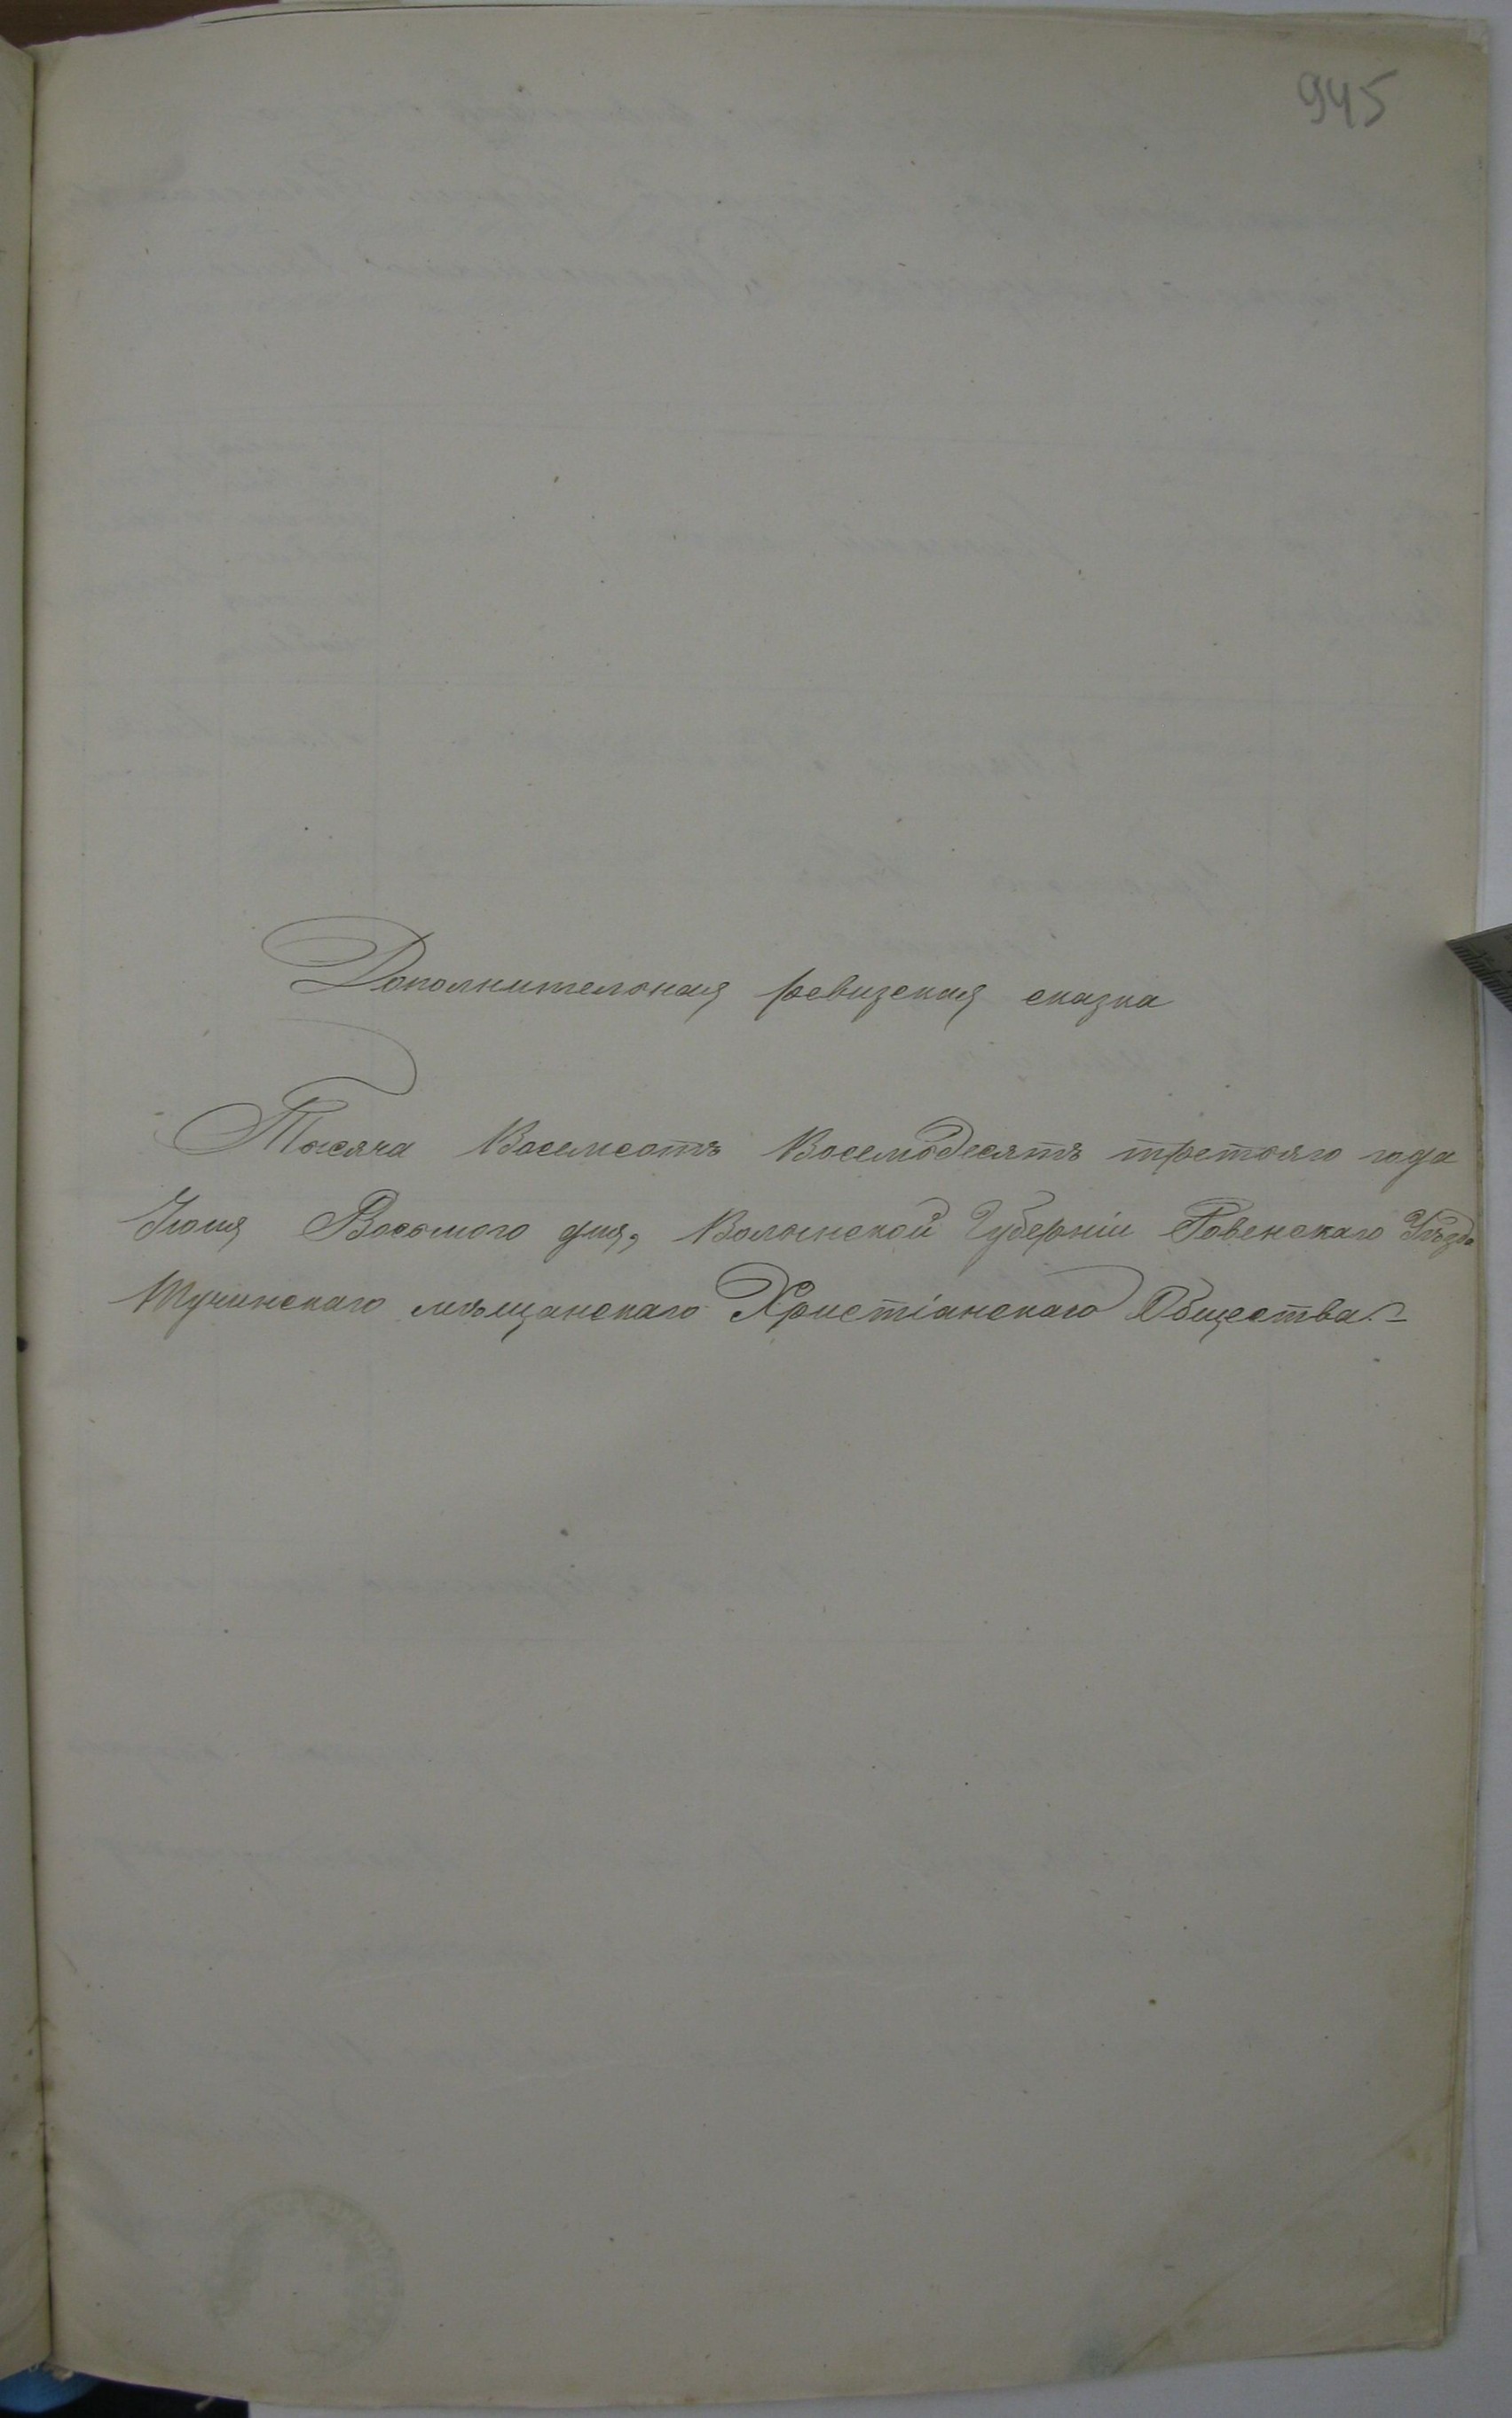 945
Дополнительная ревизская сказка
Тысяча Восемсотъ Восемьдесятъ третьяго года
Восьмого дня, Волынской Губерніи Ровенскаго Уѣзда
Тучинскаго мѣщанскаго Христіанскаго Общества.